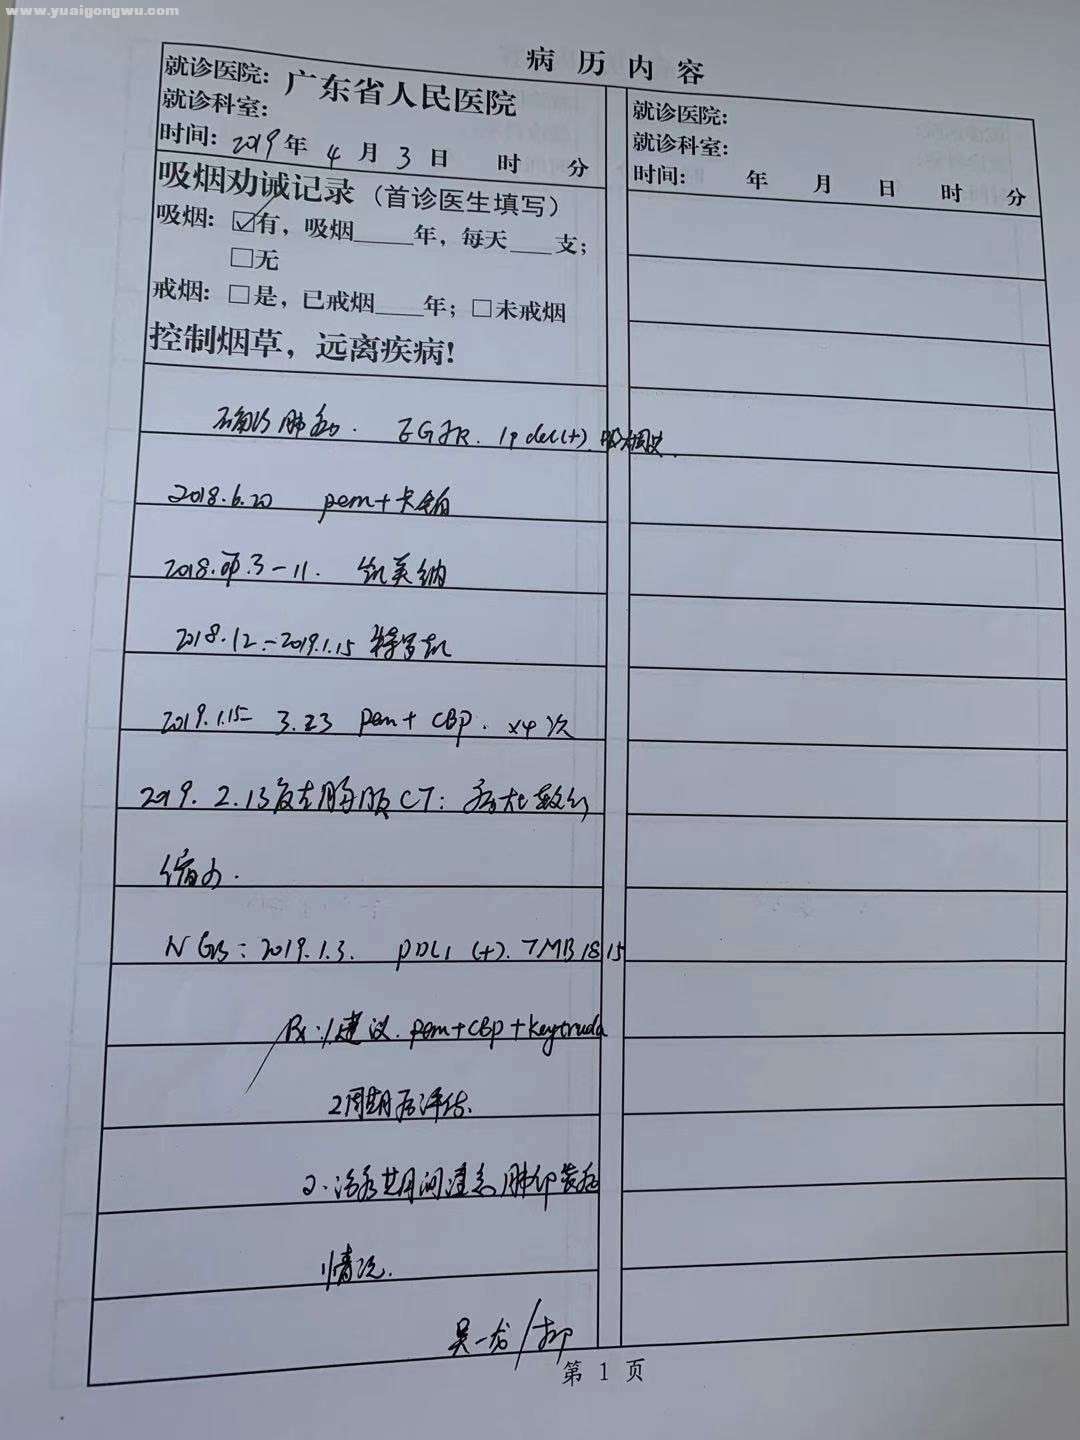 www.yuaigongwu.com
病历内容
就诊医院: 广东省人民医院
就诊科室:
时间: 2019年 4 月 3 日 时 分
吸烟劝诫记录（首诊医生填写）
吸烟: ☑有, 吸烟____年, 每天____支;
□无
戒烟: □是, 已戒烟____年; □未戒烟
控制烟草, 远离疾病!
确诊肺癌. EGFR. 19 del(+).
2018.6.20 pem+卡铂
3-11. 凯美纳
2018.12-2019.1.15 特罗凯
2019.1.15- 3.23 pem+ CBP. ×4次
2019. 2.13复查胸腹CT: 病灶较前
缩小.
NGS: 2019.1.3. PDL1 (+). TMB 18.15
Rx: 1建议. pem+CBP+keytruda
2周期后评估.
2. 治疗期间注意肺部炎症
情况.
吴一龙/
第 1 页
就诊医院:
就诊科室:
时间: 年 月 日 时 分